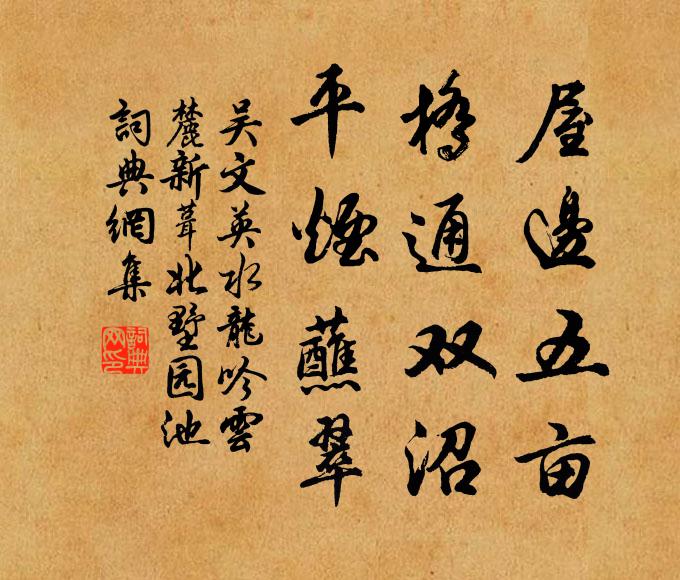 屋邊五亩
橋通双沼
平煙蘸翠
吴文英水龍吟雲
麓新葺北墅园池
詞典網集
詞典网印